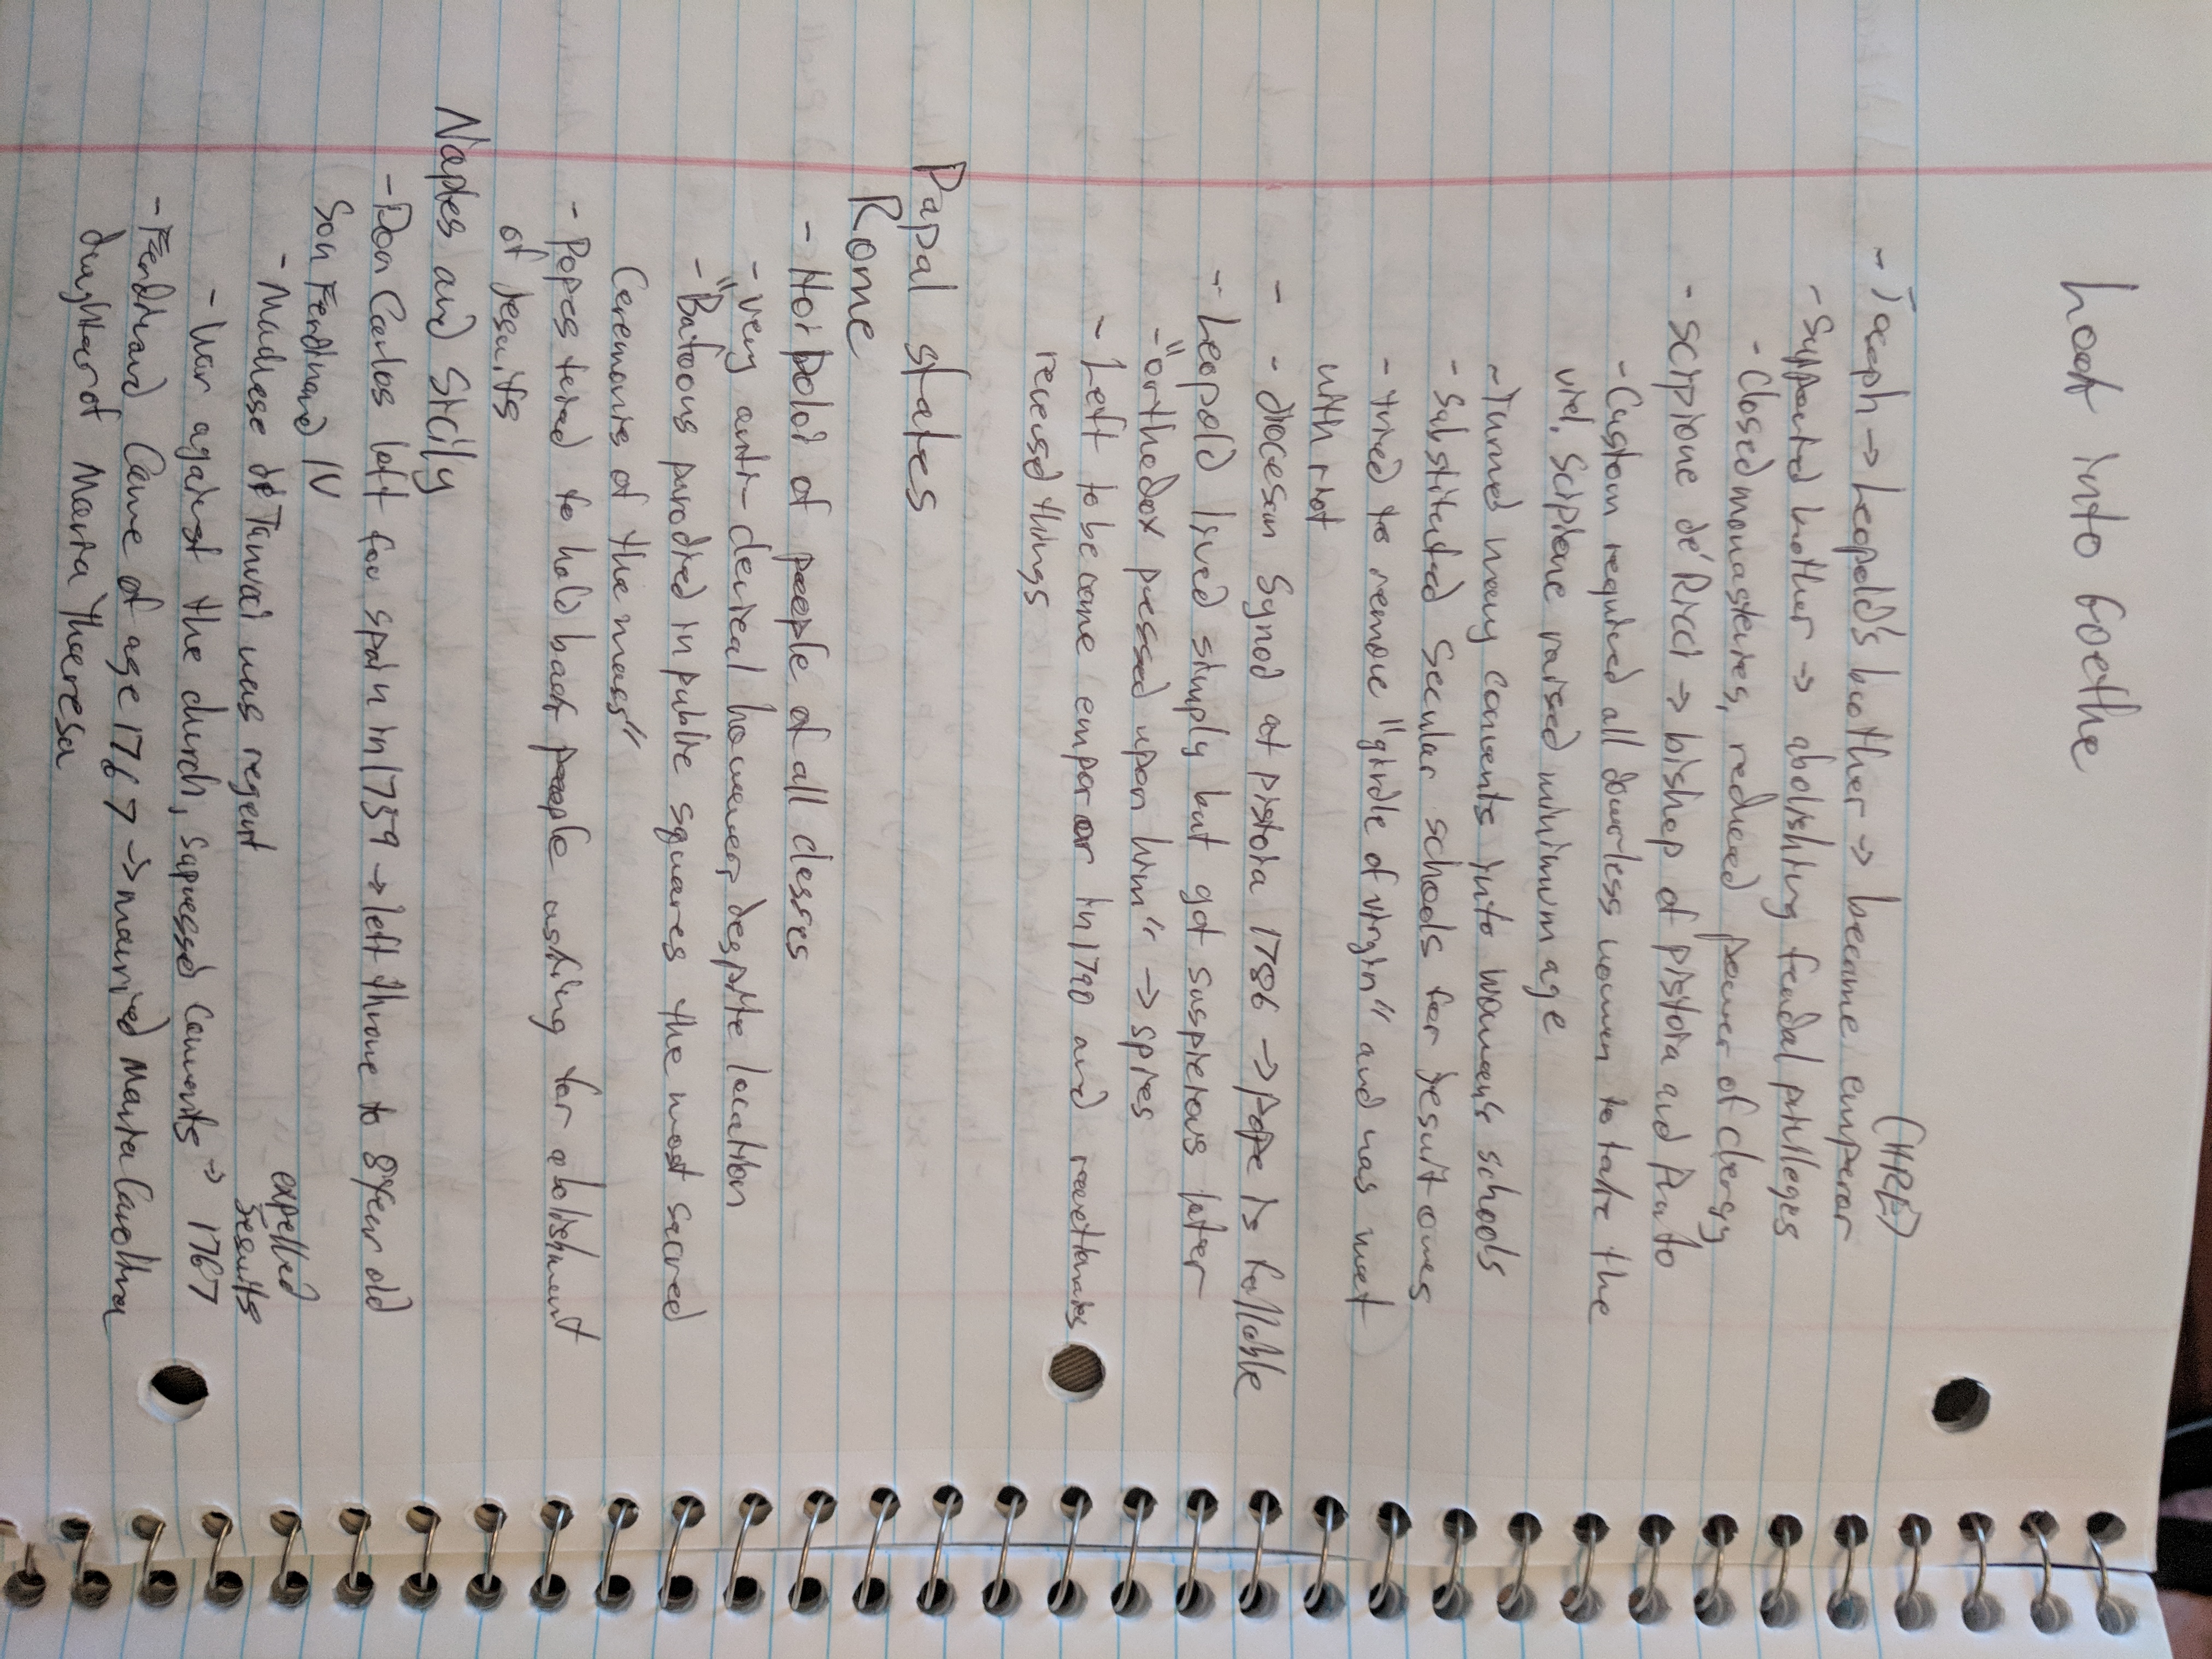 look into Goethe
(HRE)
- Joseph → Leopold's brother → became emperor
- Supported brother → abolishing feudal privileges
- Closed monasteries, reduced power of clergy
- Scipione de' Ricci → bishop of pistoia and Prato
- Custom required all dowerless women to take the
viel, Scipione raised minimum age
- Turned many convents into women's schools
- Substituted Secular schools for jesuit ones
- tried to remove "girdle of virgin" and was met
with riot
- - diocesan Synod at pistoia 1786 → pope is fallable
- Leopold lived simply but got suspicious later
- "orthedox pressed upon him" → spies
- Left to become emporor in 1790 and
recieved things
Papal states
Rome
- Hoi Poloi of people of all classes
- very anti-clerical however, despite location
- "Buffoons parodied in public squares the most sacred
Ceremonies of the mass"
- Popes tried to hold back people asking for abolishment
of jesuits
Naples and Sicily
- Don Carlos left for spain in 1759 → left throne to 8 year old
Son Ferdinand IV
- Machese di Tanucci was regent
- War against the church, supressed Convents → 1767
expelled
Jesuits
- Ferdinand Came of age 1767 → married Maria Carolina
daughter of Maria Theresa